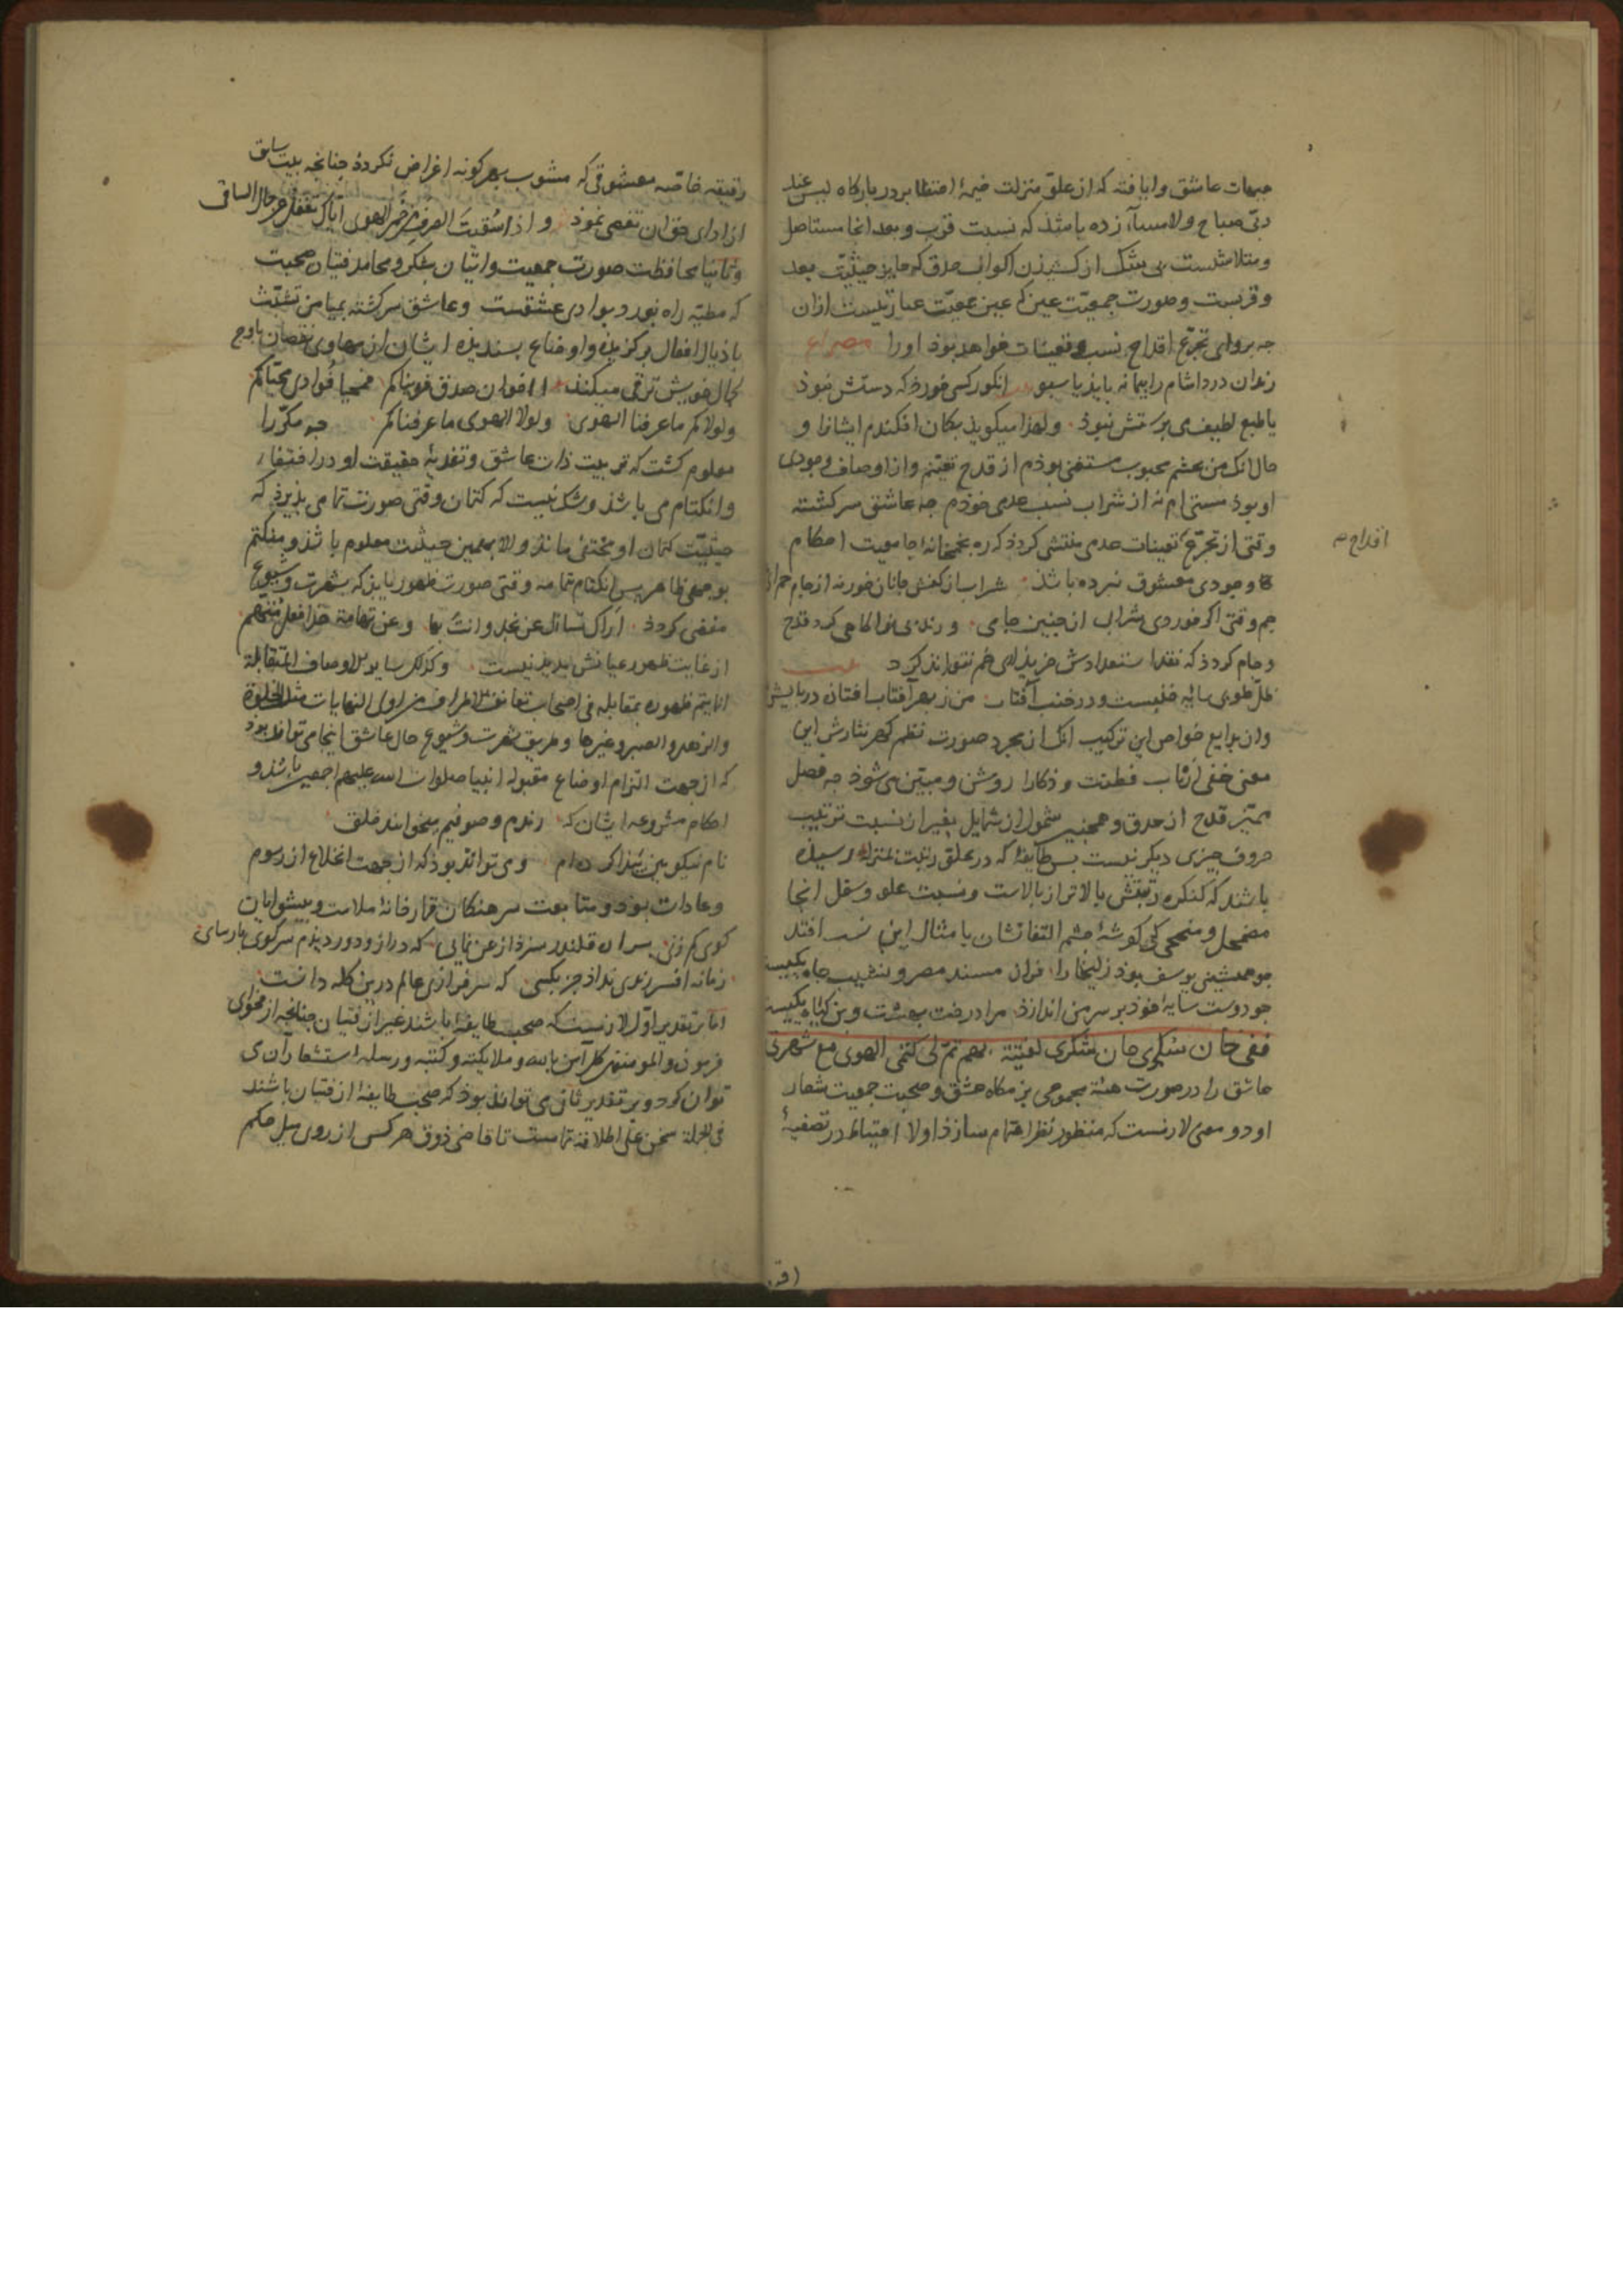 جهات عاشق وا یافته که از علو منزلت خیمهٔ اختفا بر در بارگاه لیس عند
ربی صباح ولا مساء زده باشد که نسبت قرب و بعد انجا مستاصل
و متلاشیست بی شک از کشیدن اکواب حدق که جایز حیثیت بعد
و قربست و صورت جمعیت عین که عین معیت عبارتیست ازان
چه پروای تجرع اقداح نسب و تعینات خواهد بود او را مصراع
رندان درداشام را پیمانه باید یا سبو انکور کسی خورد که دستش نبود
یا طبع لطیف می پرستش نبود و لهذا میکوید بکان افکندم ایشانرا و
حال انک من بچشم محبوب مستغنی بودم از قدح تعینم و از اوصاف وجودی
او بود مستی ام نه از شراب نسب عدمی خودم چه عاشق سرکشته
وقتی از تجرع تعینات عدمی منتشی کردد که ره بخمخانهٔ جامعیت احکام
وجودی معشوق نبرده باشد شراب از کفش جانان خور نه از جام
جم وقتی اکر خوردی شراب از چنین جامی و رندی نوا کامی کرد قدح
و جام کردد که نقد استعدادش خریداری خم نتواند کرد
ظل طوی سایهٔ خلیست و درخت آفتاب من ز بهر آفتاب افتان در پایش
و از بدایع خواص این ترکیب انک از مجرد صورت نظم کهر نثارش این
معنی خفی ارباب فطنت و ذکا را روشن و مبین می شود چه فصل
ممیز قدح از حدق و همچنین شمول از شمایل بغیر از نسبت ترتیب
حروف چیزی دیکر نیست پس طایفهٔ که در علو رتبت بمنزلهٔ رسیده
باشند که کنکره رتبتش بالاتر از بالاست و نسبت علو و سفل انجا
مضمحل و منمحی کی کوشهٔ چشم التفاتشان بامثال این نسب افتد
چو همنشینی یوسف بود زلیخا را فراز مسند مصر و نشیب چاه یکیست
چو دوست سایهٔ خود بر سر من اندازد مرا درخت بهشت و بن کیاه یکیست
ففی حان سکری حان شکری لفتیة بهم تم لی کتمی الهوی مع شهرتی
عاشق را در صورت هیئة مجموعی بزمکاه عشق و صحبت جمعیت شعار
او دو معنی لازمست که منظور نظر اهتمام سازد اولا احتیاط در تصفیهٔ
اقداح صح
رقیقهٔ خاصه معشوقی که مشوب بهر کونه اغراض نکردد چنانچه بیت سابق
از ادای حق ان تفصی نمود و اذا سقیت الصرف من خمر الهوی ایاک تغفل عن جمال الساقی
و ثانیا محافظت صورت جمعیت و اتیان بشکر و محامد فتیان صحبت
که مطیهٔ راه نورد بوادی عشقست و عاشق سرکشته بمیامن تشبث
باذیال افعال برکزیده و اوضاع پسندیده ایشان از مهاوی نقصان باوج
کمال خویش ترقی میکند اا اخوان صدق فؤادی محیاکم
ولولاکم ما عرفنا الهوی ولولا الهوی ما عرفناکم چه مکررا
معلوم کشت که تربیت ذات عاشق و تغذیهٔ حقیقت او در اختفا
و انکتام می باشد و شک نیست که کتمان وقتی صورت تمامی پذیرد که
حیثیت کتمان او مختفی ماند و الا بهمین حیثیت معلوم باشد و منکتم
بوجهی ظاهر پس انکتام تمامه وقتی صورت ظهور یابد که بشهرت و شیوع
مفضی کردد اراک تسائل عن نجد وانت بها وعن تهامة هذا فعل متهم
از غایت ظهور عیانش پدید نیست وکذلک سایر الاوصاف المتقابلة
انما یتم ظهوره بمقابله فی اصحاب تعانق الاطراف من اولی النهایات مثل الخلوة
والزهد والصبر وغیرها و طریق شهرت و شیوع حال عاشق اینجا می تواند بود
که از جهت التزام اوضاع مقبولهٔ انبیا صلوات الله علیهم اجمعین باشد و
احکام مشروعهٔ ایشان که رندم و صوفیم میخوانند خلق
نام نیکو بین و می تواند بود که از جهت انخلاع از رسوم
و عادات بود و متابعت سرهنکان قمارخانهٔ ملامت و پیشوایان
کوی کم زنی پسرا ره قلندر سزد ار بمن نمایی که دراز و دور دیدم سر کوی پارسایی
زمانه افسر رندی نداد جز بکسی که سرفرازی عالم درین کله دانست
اما بتقدیر اول لازمست که صحبت طایفهٔ باشد غیر از فتیان چنانچه از فحوای
والمومنون کل آمن بالله و ملایکته و کتبه و رسله استشعار آن می
توان کرد و بر تقدیر ثانی می تواند بود که صحبت طایفهٔ از فتیان باشند
فی الجملة سخن علی اطلاقه تمامست تا قاضی ذوق هر کسی از روی میل حکم